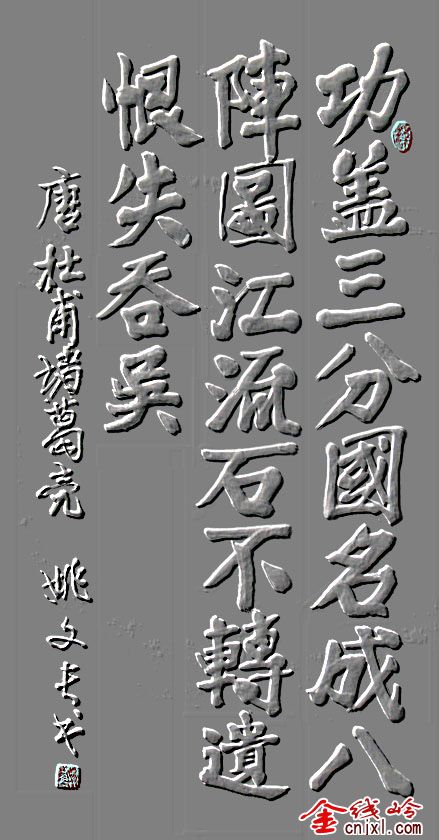 功盖三分國名成八
陣圖江流石不轉遺
恨失吞吳
唐杜甫諸葛亮 姚文長书
金线岭
cnjxl.com